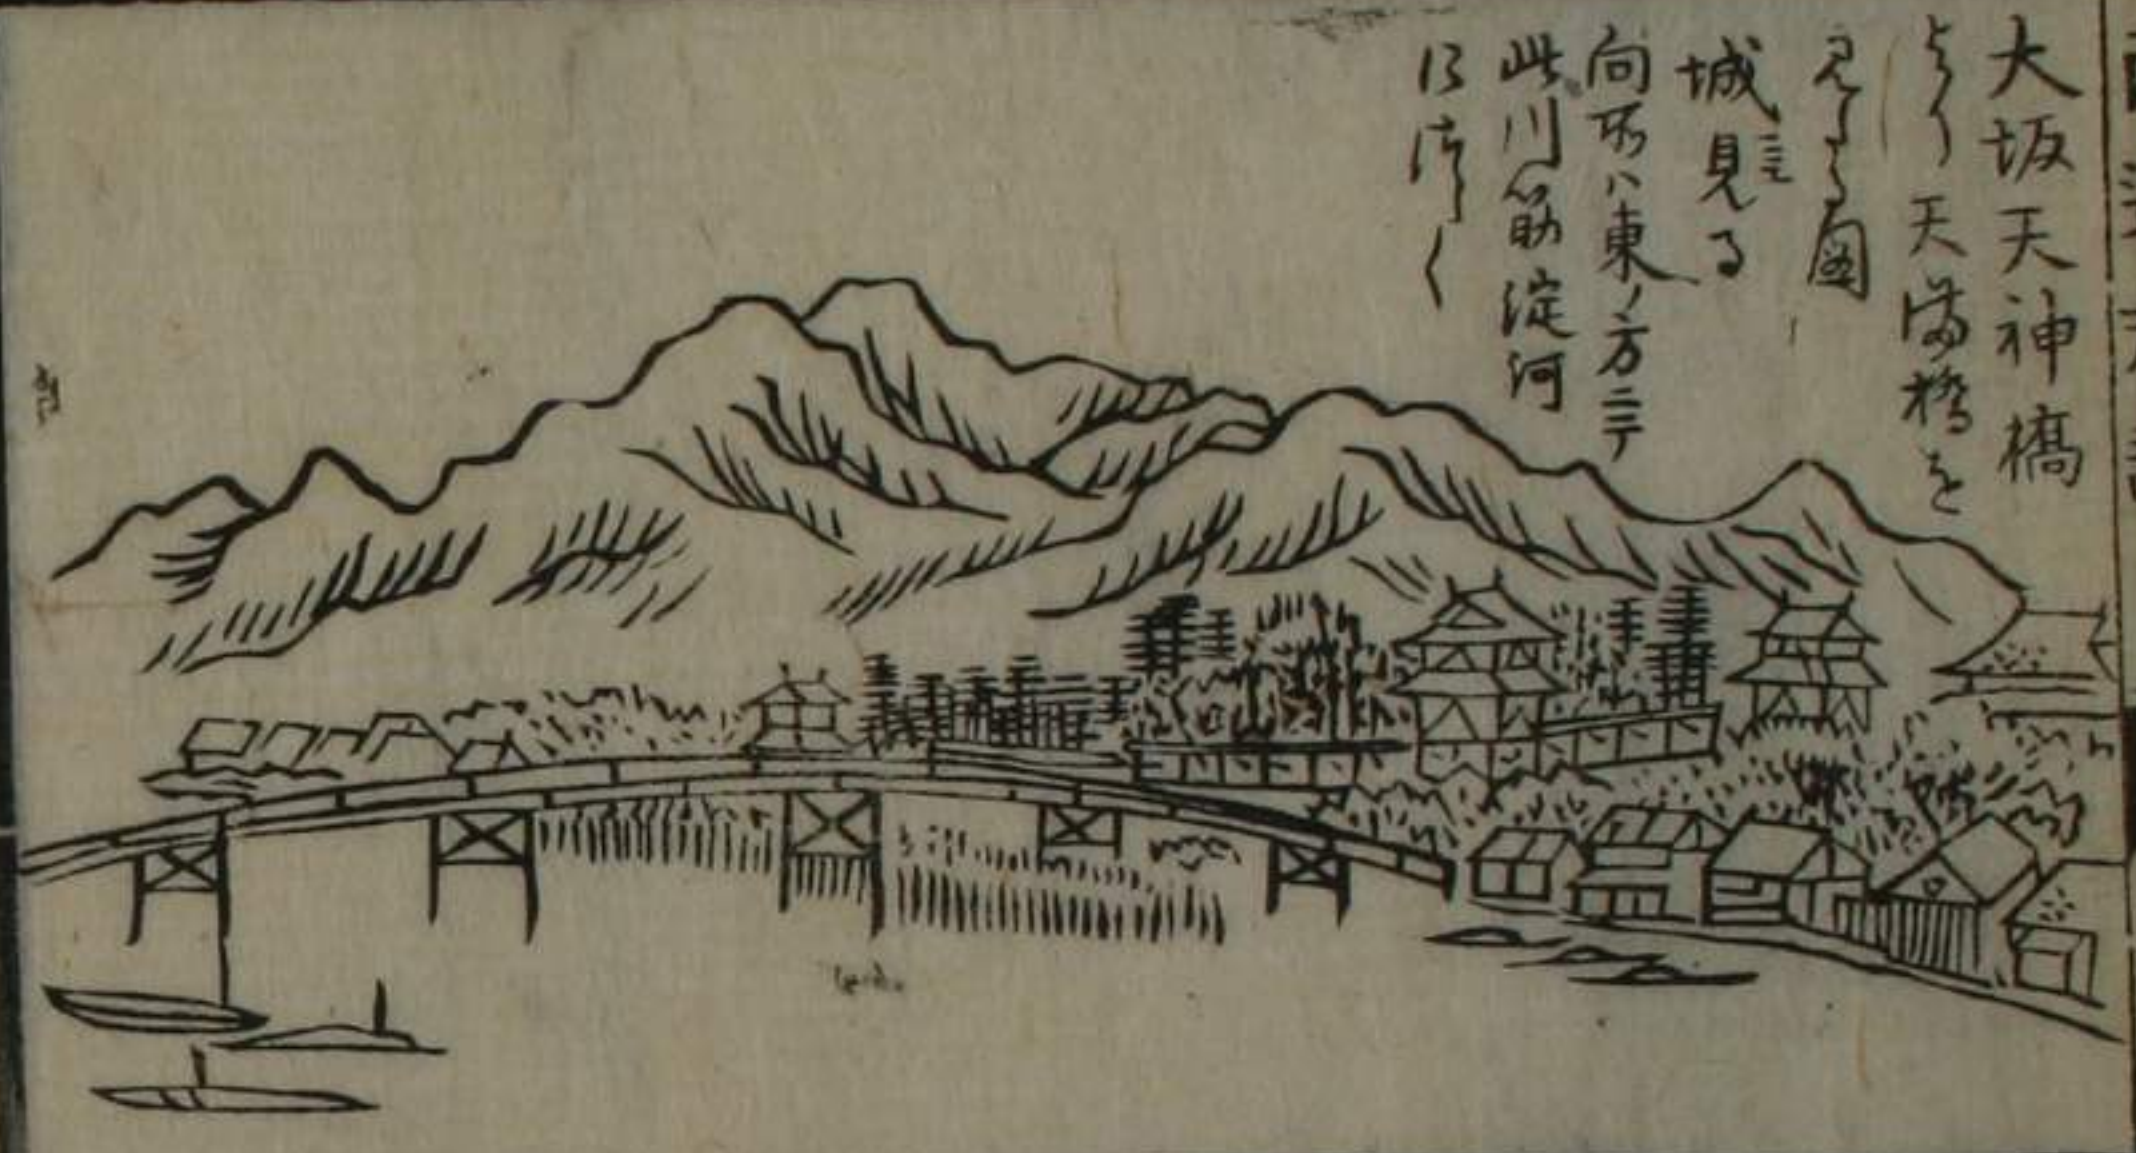 大坂天神橋
より天満橋を
見たる圖
城見る
向所ハ東ノ方ニテ
此川筋淀河
につゝく